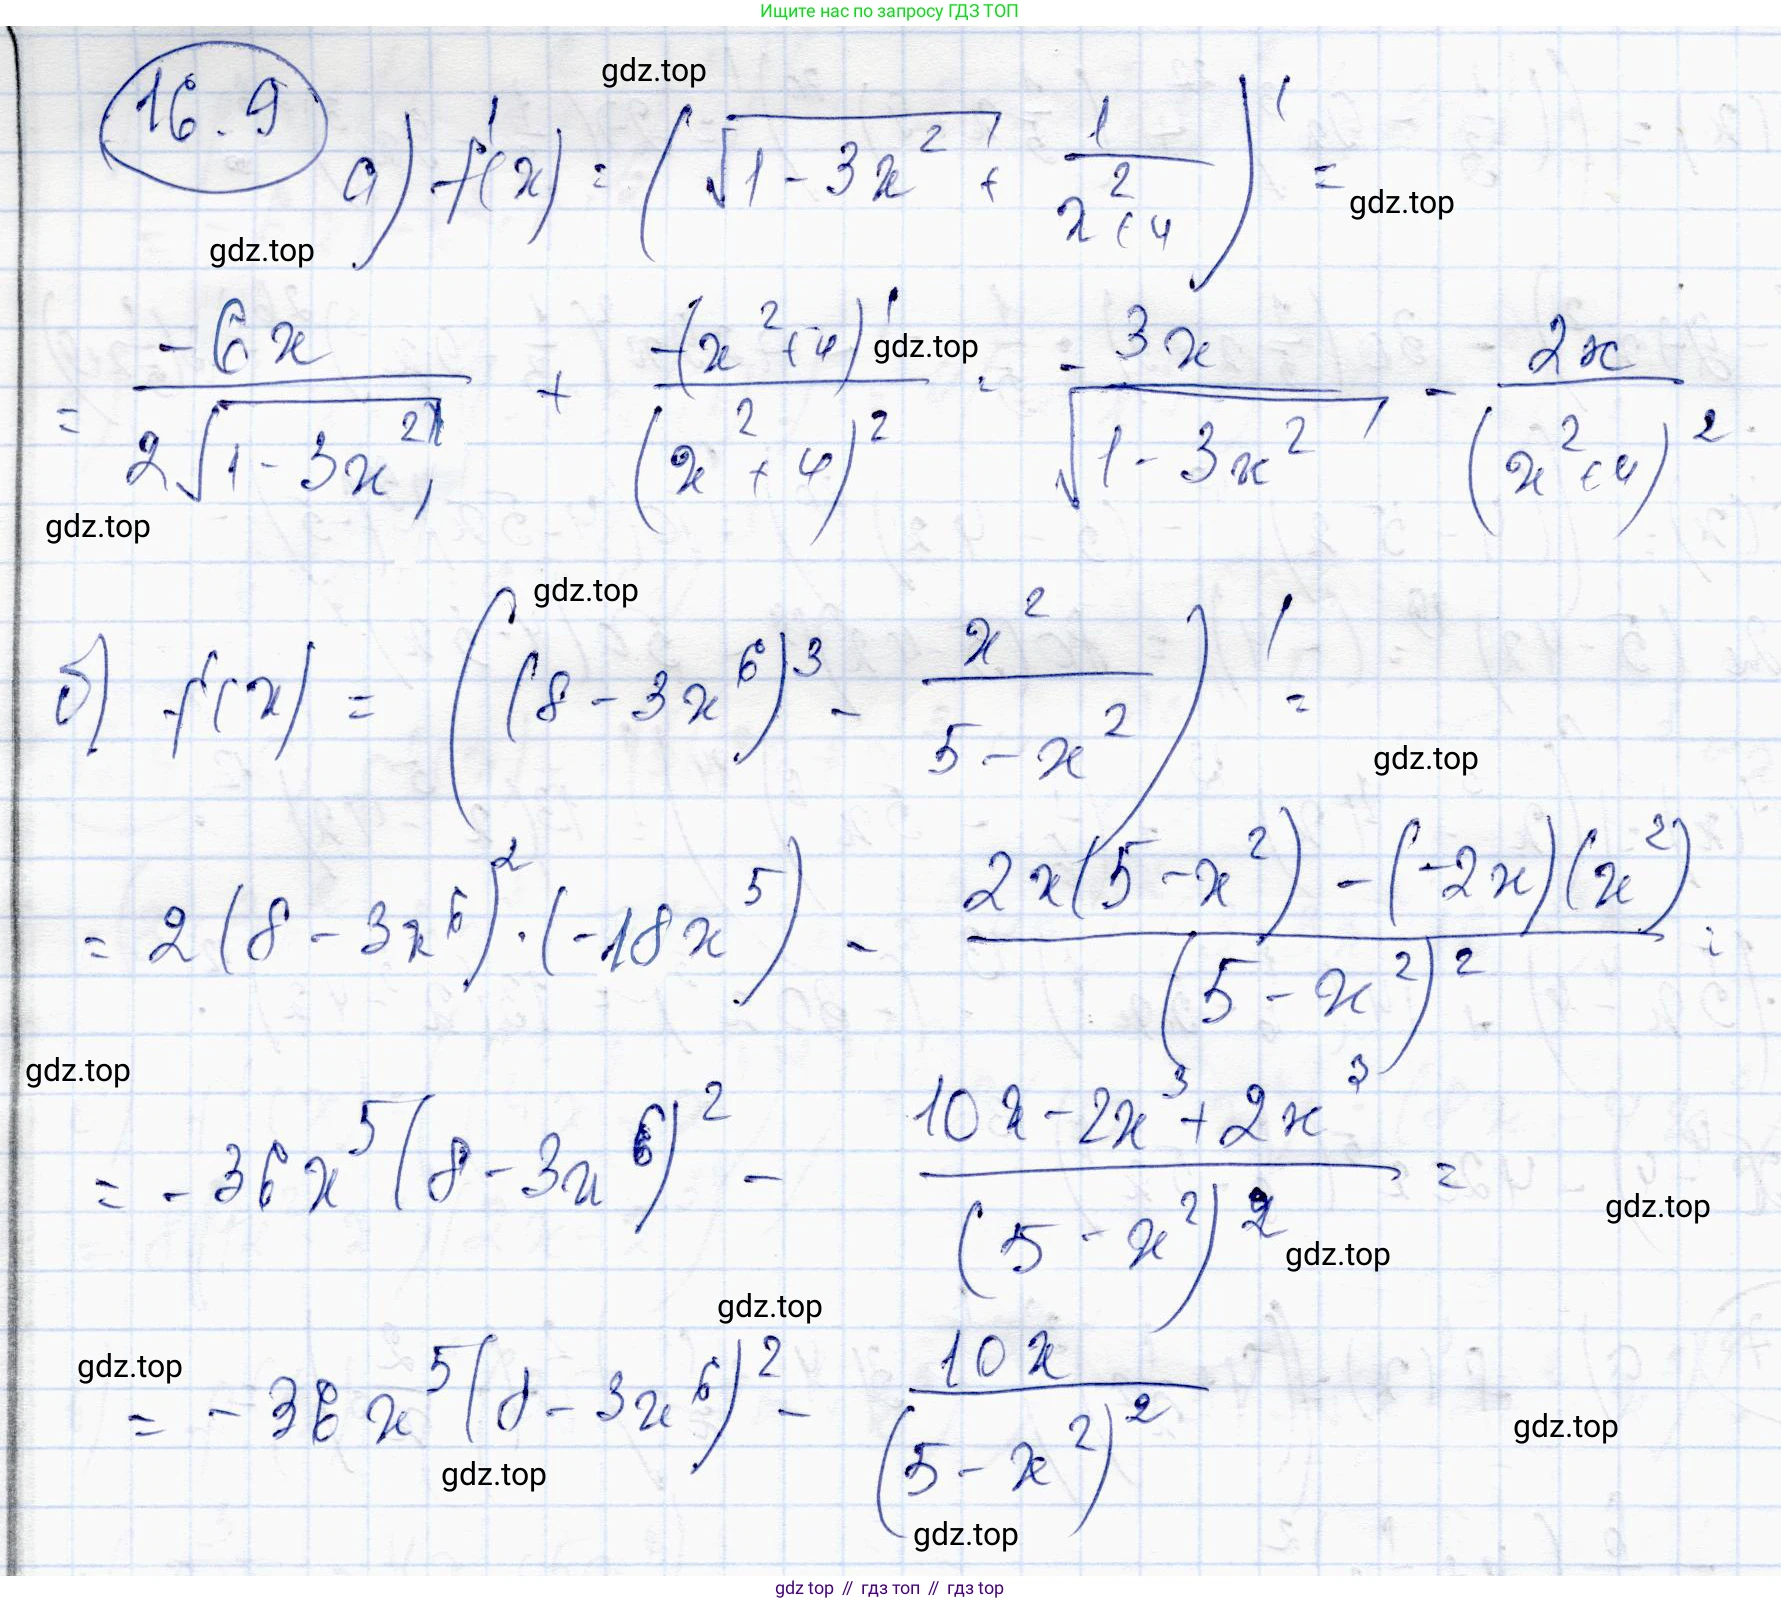 Ищите нас по запросу ГДЗ ТОП
16.9
gdz.top
а) f'(x) = (√(1-3x²) + 1/(x²+4))' =
gdz.top
gdz.top
= -6x/(2√(1-3x²)) + -(x²+4)'/(x²+4)² = -3x/√(1-3x²) - 2x/(x²+4)²
gdz.top
gdz.top
gdz.top
б) f'(x) = ((8-3x⁶)³ - x²/(5-x²))' =
gdz.top
= 2(8-3x⁶)²·(-18x⁵) - (2x(5-x²) - (-2x)(x²))/(5-x²)² =
gdz.top
= -36x⁵(8-3x⁶)² - (10x-2x³+2x³)/(5-x²)² =
gdz.top
gdz.top
gdz.top
gdz.top
= -36x⁵(8-3x⁶)² - 10x/(5-x²)²
gdz.top
gdz.top
gdz.top
gdz top // гдз топ // gdz top